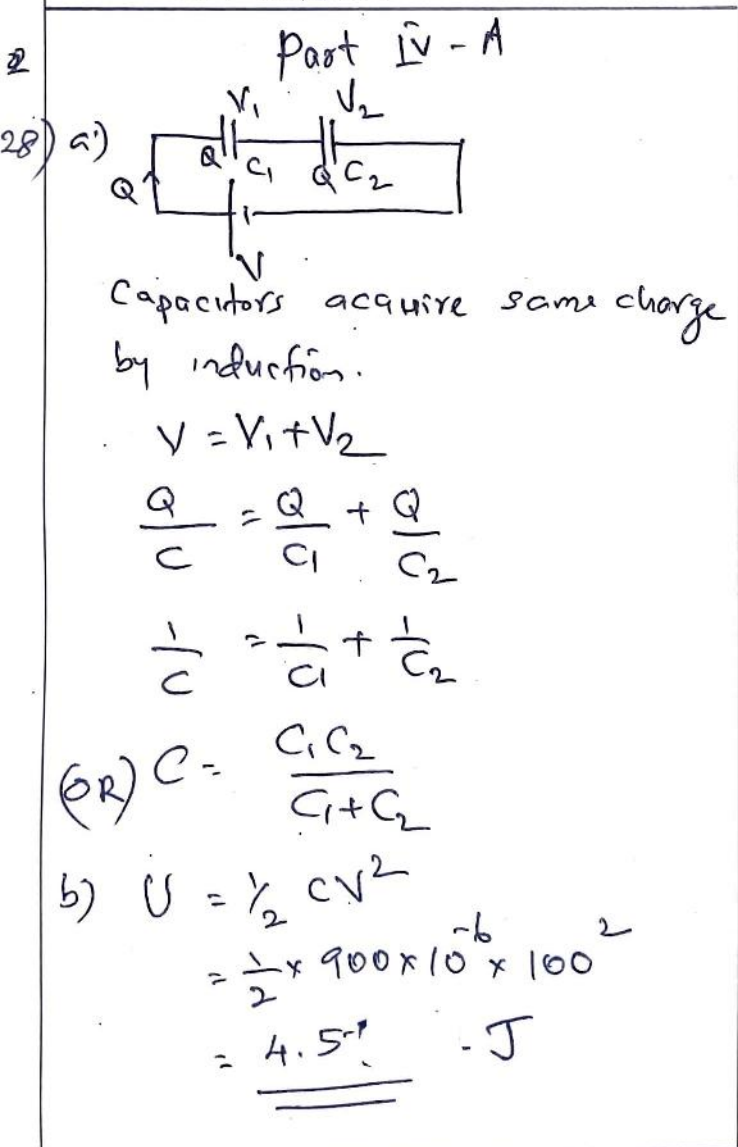 2
Part IV - A
28) a)
V₁ V₂
Q C₁ Q C₂
Q
V
Capacitors acquire same charge
by induction.
V = V₁ + V₂
Q/C = Q/C₁ + Q/C₂
1/C = 1/C₁ + 1/C₂
(OR) C = C₁C₂/C₁+C₂
b) U = ½ CV²
= ½ × 900 × 10⁻⁶ × 100²
= 4.5 J